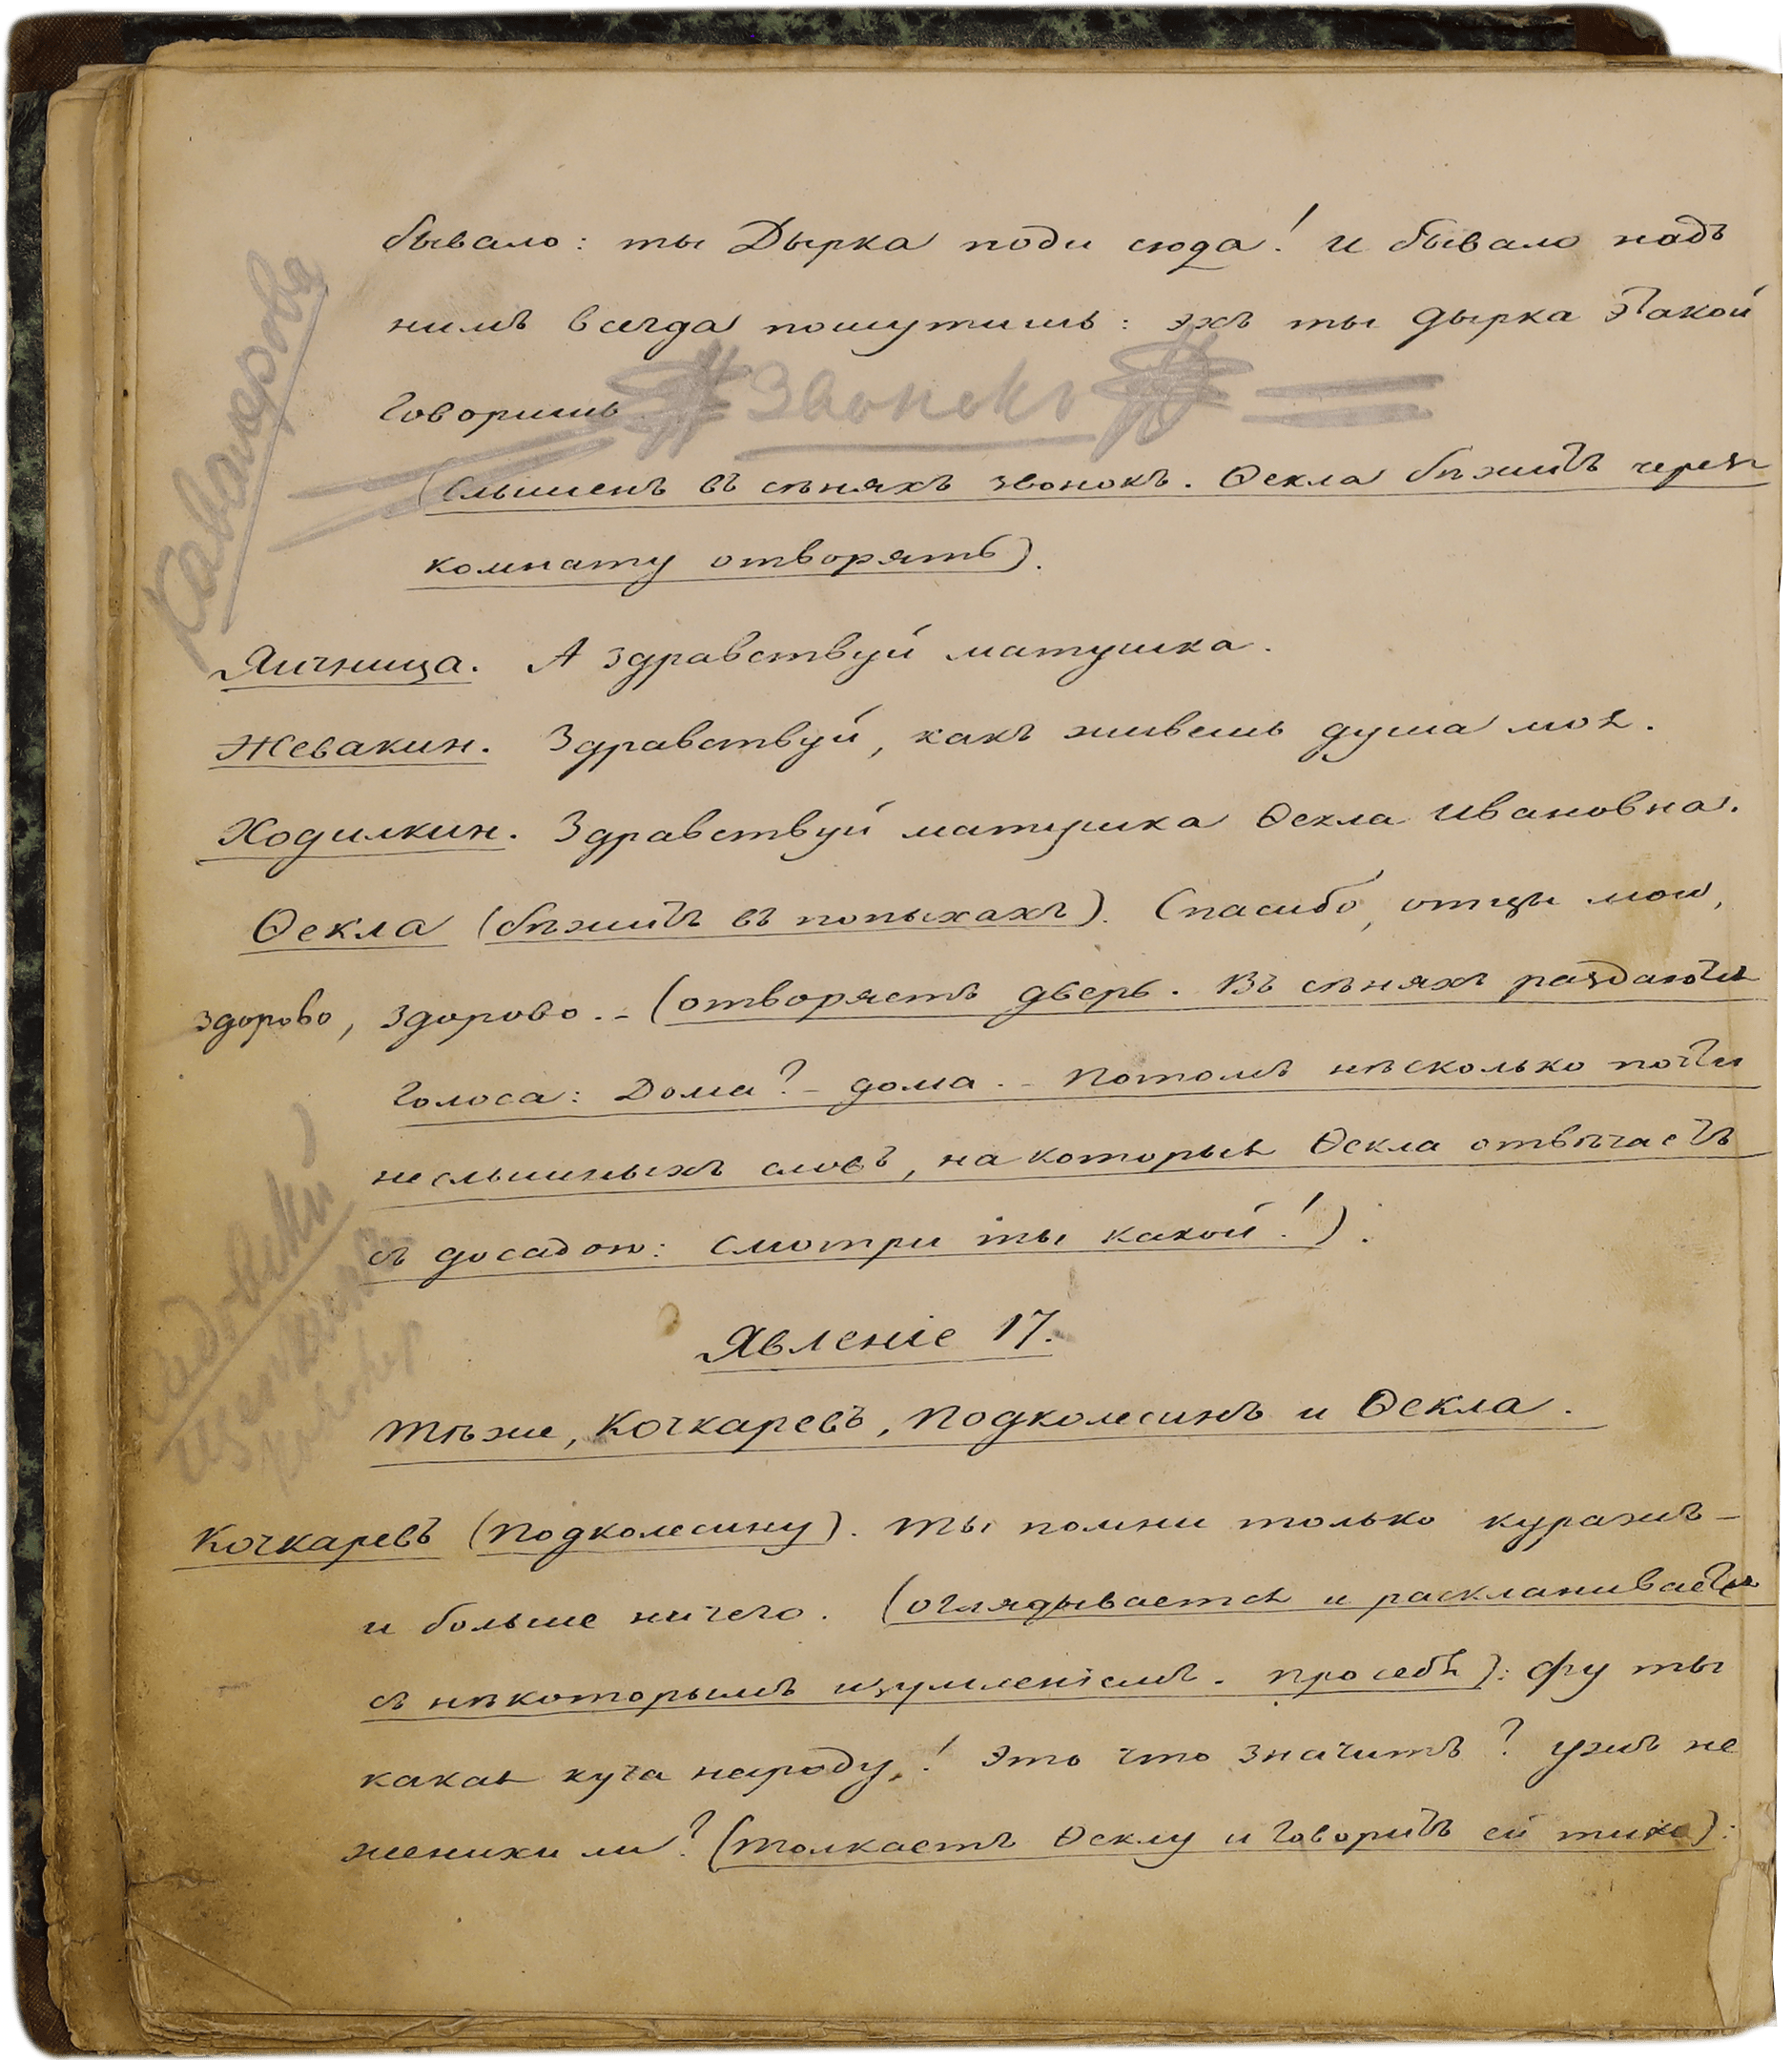 бывало: ты Дырка поди сюда! и бывало надъ
нимъ всегда пошутишь: эхъ ты дырка Такой
говоришь.
Звонокъ
(Слышенъ въ сѣняхъ звонокъ. Ѳекла бѣжитъ черезъ
комнату отворять).
Яичница. А здравствуй матушка.
Жевакин. Здравствуй, какъ живешь душа моя.
Ходилкин. Здравствуй матушка Ѳекла Ивановна.
Ѳекла (бѣжитъ въ попыхахъ). Спасибо, отцы мои,
здорово, здорово. - (отворяетъ дверь. Въ сѣняхъ раздаются
голоса: Дома? - дома. - Потомъ нѣсколько почти
неслышныхъ словъ, на которыя Ѳекла отвѣчаетъ
съ досадою: смотри ты какой!).
Явленіе 17.
Тѣже, Кочкаревъ, Подколесинъ и Ѳекла.
Кочкаревъ (Подколесину). Ты помни только куражъ -
и больше ничего. (оглядывается и раскланивается
съ нѣкоторымъ изумленіемъ. про себя): фу ты
какая куча народу! Это что значитъ? ужъ не
женихи ли? (толкаетъ Ѳеклу и говоритъ ей тихо):